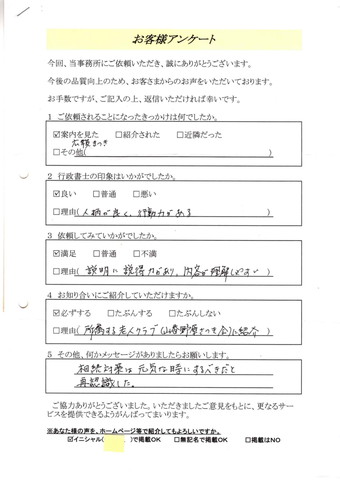 お客様アンケート
今回、当事務所にご依頼いただき、誠にありがとうございます。
今後の品質向上のため、お客さまからのお声をいただいております。
お手数ですが、ご記入の上、返信いただければ幸いです。
1 ご依頼されることになったきっかけは何でしたか。
☑案内を見た □紹介された □近隣だった
□その他( )
2 行政書士の印象はいかがでしたか。
☑良い □普通 □悪い
□理由(人柄が良く、行動力がある)
3 依頼してみていかがでしたか。
☑満足 □普通 □不満
□理由(説明に説得力があり、内容が理解しやすい)
4 お知り合いにご紹介していただけますか。
☑必ずする □たぶんする □たぶんしない
□理由(所属する老人クラブ に紹介)
5 その他、何かメッセージがありましたらお願いします。
相続対策は元気な時にするべきだと
再認識した。
ご協力ありがとうございました。いただきましたご意見をもとに、更なるサー
ビスを提供できるようがんばってまいります。
※あなた様の声を、ホームページ等で紹介してもよろしいですか。
☑イニシャル( )で掲載OK □無記名で掲載OK □掲載はNO